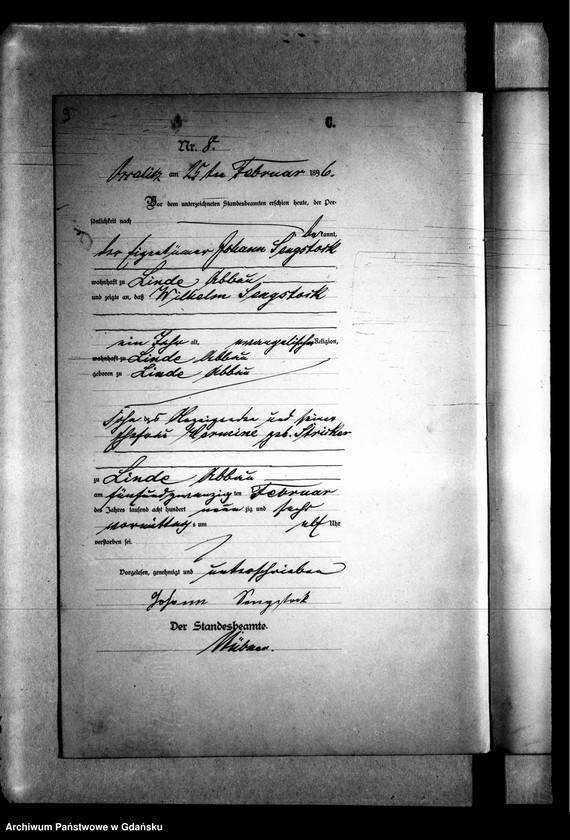 9
C.
Nr. 8.
am 25ten Februar 1896.
Vor dem unterzeichneten Standesbeamten erschien heute, der Per-
sönlichkeit nach
bekannt,
der Eigentümer Johann Sengstock
wohnhaft zu Linde Abbau
und zeigte an, daß Wilhelm Sengstock
ein Jahr alt, evangelischer Religion,
wohnhaft zu Linde Abbau
geboren zu Linde Abbau
Sohn des Anzeigenden und seiner
Ehefrau Hermine geb. Stricker
zu Linde Abbau
am fünfundzwanzigten Februar
des Jahres tausend acht hundert neunzig und sechs
vormittags um elf Uhr
verstorben sei.
Vorgelesen, genehmigt und unterschrieben
Johann Sengstock
Der Standesbeamte.
Archiwum Państwowe w Gdańsku